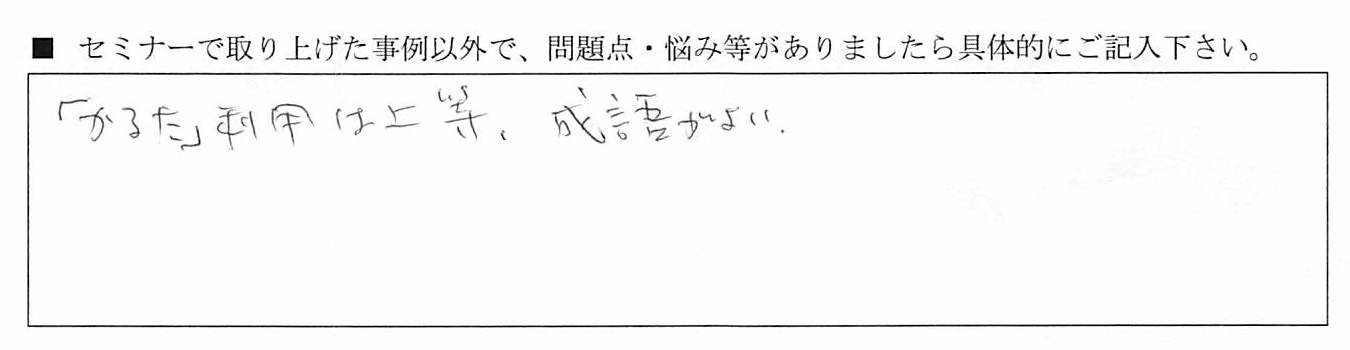 ■ セミナーで取り上げた事例以外で、問題点・悩み等がありましたら具体的にご記入下さい。
「かるた」利用は上等、成語がよい.